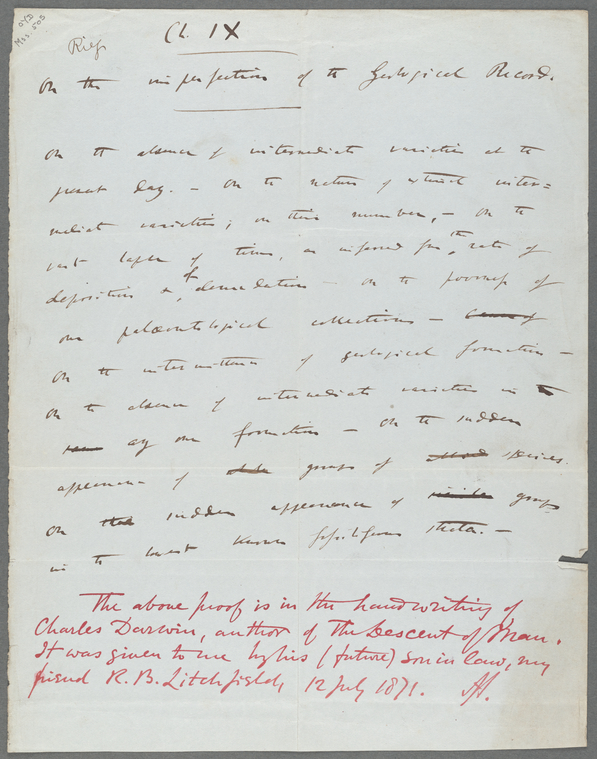 Mss. 503
Ch. IX
On the imperfection of the Geological Record.
On the absence of intermediate varieties at the
present day. — On the nature of extinct inter=
mediate varieties; on their number, — On the
vast lapse of time, as inferred from the rate of
deposition & of denudation — On the poorness of
our palæontological collections —
On the intermittence of geological formations —
On the absence of intermediate varieties in
any one formation — On the sudden
appearance of groups of species.
On sudden appearance of groups
in the lowest known fossiliferous strata. —
The above proof is in the handwriting of
Charles Darwin, author of The Descent of Man.
It was given to me by his (future) son in law, my
friend R. B. Litchfield, 12 July 1871.